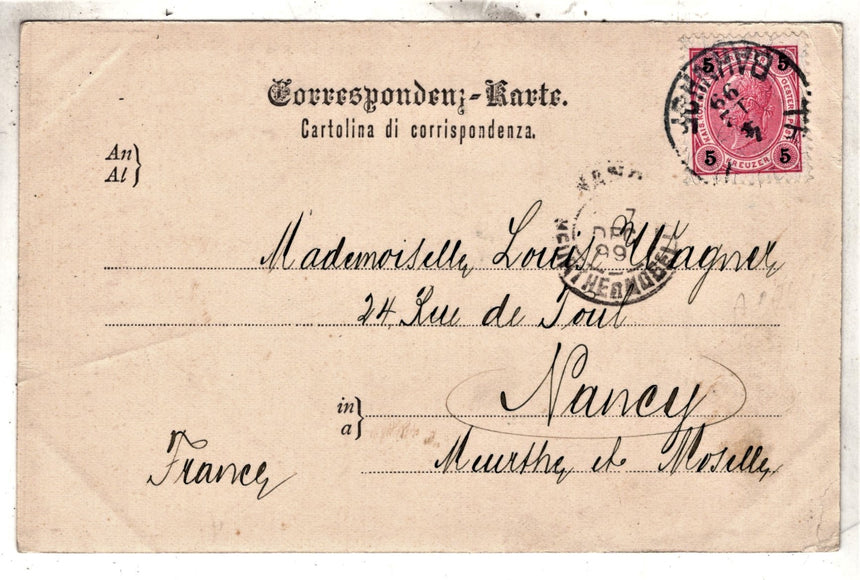 Correspondenz-Karte.
Cartolina di corrispondenza.
An
Al
Mademoiselle Louise Wagner
24 Rue de Toul
in
a
Nancy
Meurthe et Moselle
France
5 5
5 5
KREUZER
99
7
DEC
99